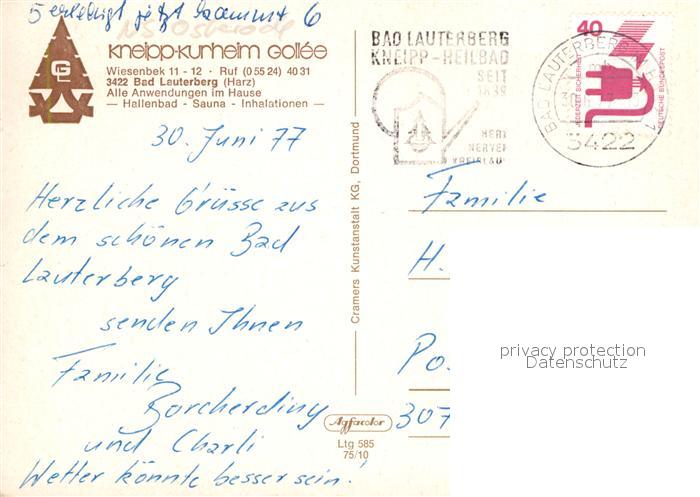 5 erledigt jetzt kommt 6
NS Osterode
GC
Kneipp-Kurheim Gollée
Wiesenbek 11 - 12 · Ruf (0 55 24) 40 31
3422 Bad Lauterberg (Harz)
Alle Anwendungen im Hause
— Hallenbad - Sauna - Inhalationen —
30. Juni 77
Herzliche Grüsse aus
dem schönen Bad
Lauterberg
senden Ihnen
Familie
Borcherding
und Charli
Wetter könnte besser sein!
Cramers Kunstanstalt KG, Dortmund
Agfacolor
Ltg 585
75/10
BAD LAUTERBERG
KNEIPP-HEILBAD
SEIT
1839
HERZ
NERVEN
KREISLAUF
BAD LAUTERBERG
3422
40
JEDERZEIT SICHERHEIT
DEUTSCHE BUNDESPOST
Familie
H.
Po.
307
privacy protection
Datenschutz